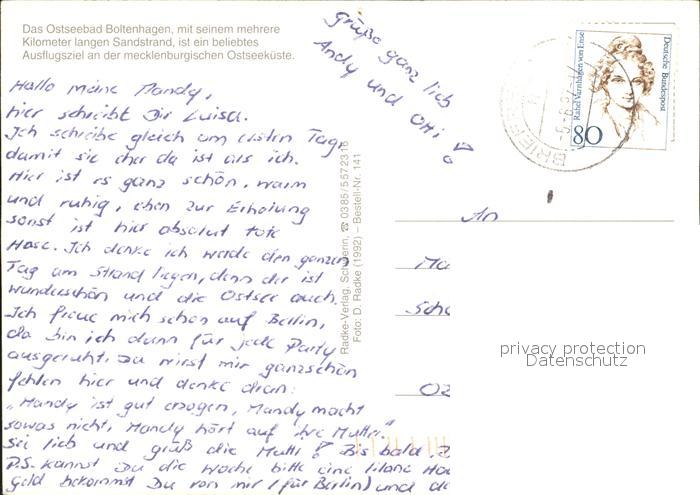 Das Ostseebad Boltenhagen, mit seinem mehrere
Kilometer langen Sandstrand, ist ein beliebtes
Ausflugsziel an der mecklenburgischen Ostseeküste.
Grüße ganz lieb
Andy und Otti
Hallo meine Mandy,
hier schreibt Dir Luisa.
Ich schreibe gleich am ersten Tag,
damit sie eher da ist als ich.
Hier ist es ganz schön, warm
und ruhig, eben zur Erholung
sonst ist hier absolut tote
Hose. Ich denke ich werde den ganzen
Tag am Strand liegen, denn der ist
wunderschön und die Ostsee auch.
Ich freue mich schon auf Berlin,
da bin ich dann für jede Party
ausgeruht. Du wirst mir ganzschön
fehlen hier und denke dran:
„Mandy ist gut erzogen, Mandy macht
sowas nicht, Mandy hört auf ihre Mutti."
Sei lieb und grüß die Mutti! Bis bald
P.S. Kannst Du die Woche bitte eine lilane
Geld bekommst Du von mir (für Berlin) und
Radke-Verlag, Schwerin, ☎ 0385/5572316
Foto: D. Radke (1992) – Bestell-Nr. 141
Deutsche Bundespost
Rahel Varnhagen von Ense
80
BRIEF
An
Ma
Sch
privacy protection
Datenschutz